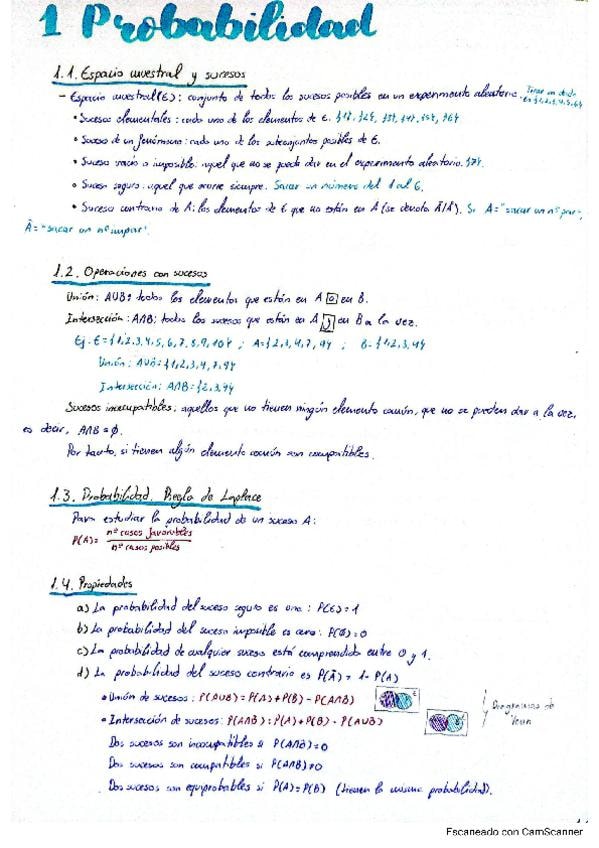 1 Probabilidad
1.1. Espacio muestral y sucesos
- Espacio muestral (E): conjunto de todos los sucesos posibles en un experimento aleatorio. Tirar un dado
E={1,2,3,4,5,6}
• Sucesos elementales: cada uno de los elementos de E. {1}, {2}, {3}, {4}, {5}, {6}
• Suceso de un fenómeno: cada uno de los subconjuntos posibles de E.
• Suceso vacío o imposible: aquel que no se puede dar en el experimento aleatorio. {7}.
• Suceso seguro: aquel que ocurre siempre. Sacar un número del 1 al 6.
• Suceso contrario de A: los elementos de E que no están en A (se denota Ā/A'). Si A = "sacar un nº par",
Ā = "sacar un nº impar".
1.2. Operaciones con sucesos
Unión: AUB: todos los elementos que están en A o en B.
Intersección: A∩B: todos los sucesos que están en A y en B a la vez.
Ej. E={1,2,3,4,5,6,7,8,9,10} ; A={2,3,4,7,9} ; B={1,2,3,9}
Unión: AUB={1,2,3,4,7,9}
Intersección: A∩B={2,3,9}
Sucesos incompatibles: aquellos que no tienen ningún elemento común, que no se pueden dar a la vez,
es decir, A∩B=∅.
Por tanto, si tienen algún elemento común son compatibles.
1.3. Probabilidad. Regla de Laplace
Para estudiar la probabilidad de un suceso A:
P(A)= nº casos favorables
nº casos posibles
1.4. Propiedades
a) La probabilidad del suceso seguro es uno: P(E)=1
b) La probabilidad del suceso imposible es cero: P(∅)=0
c) La probabilidad de cualquier suceso está comprendida entre 0 y 1.
d) La probabilidad del suceso contrario es P(Ā) = 1-P(A)
• Unión de sucesos: P(AUB)=P(A)+P(B)-P(A∩B)
• Intersección de sucesos: P(A∩B)=P(A)+P(B)-P(AUB)
Diagramas de
Venn
Dos sucesos son incompatibles si P(A∩B)=0
Dos sucesos son compatibles si P(A∩B)≠0
Dos sucesos son equiprobables si P(A)=P(B) (tienen la misma probabilidad).
Escaneado con CamScanner